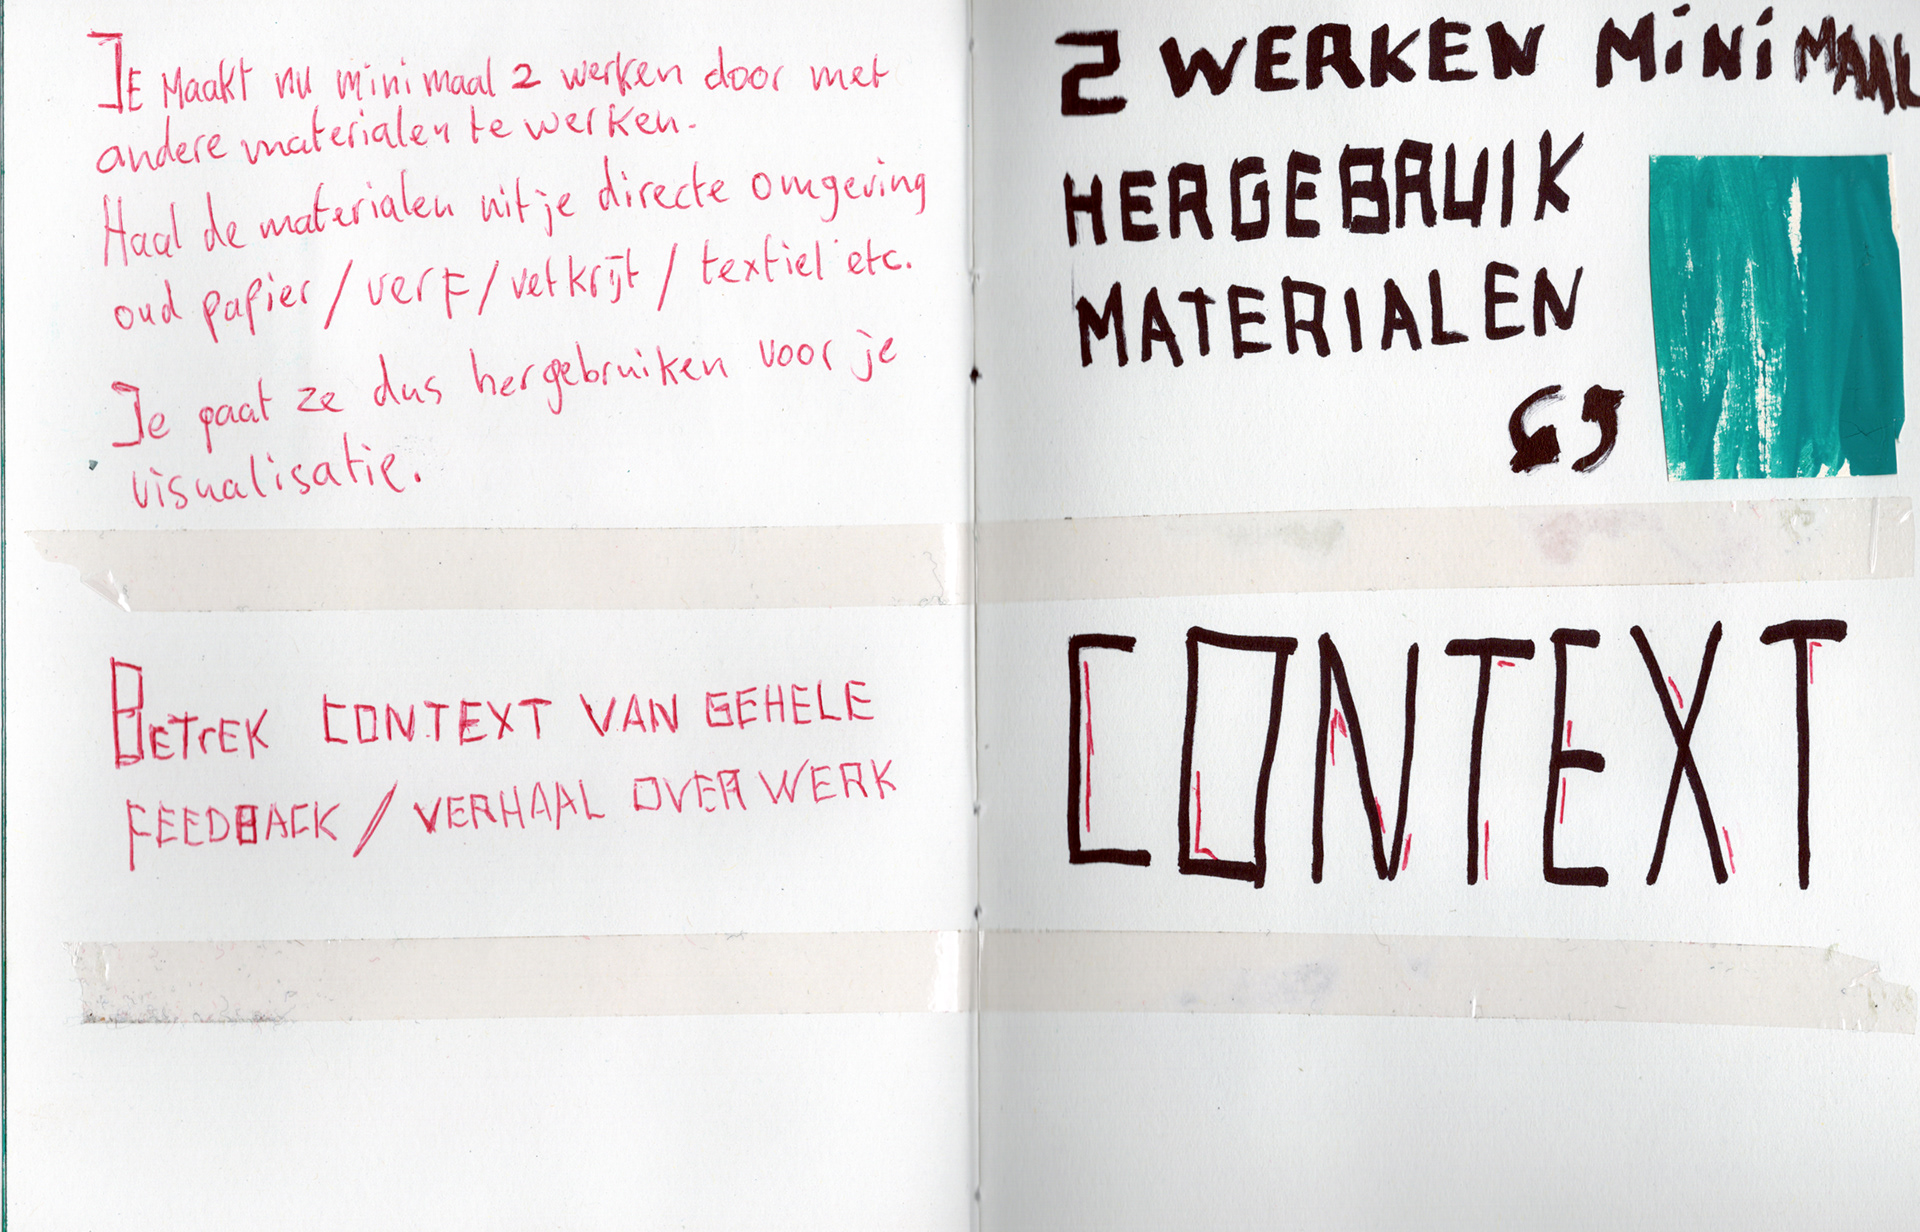 JE Maakt nu minimaal 2 werken door met
andere materialen te werken.
Haal de materialen uit je directe omgeving
oud papier / verf / vetkrijt / textiel etc.
Je gaat ze dus hergebruiken voor je
visualisatie.
BETrEK CONTEXT VAN GEHELE
FEEDBACK / VERHAAL OVER WERK
2 WERKEN MiNiMAAL
HERGEBRUIK
MATERIALEN
CONTEXT